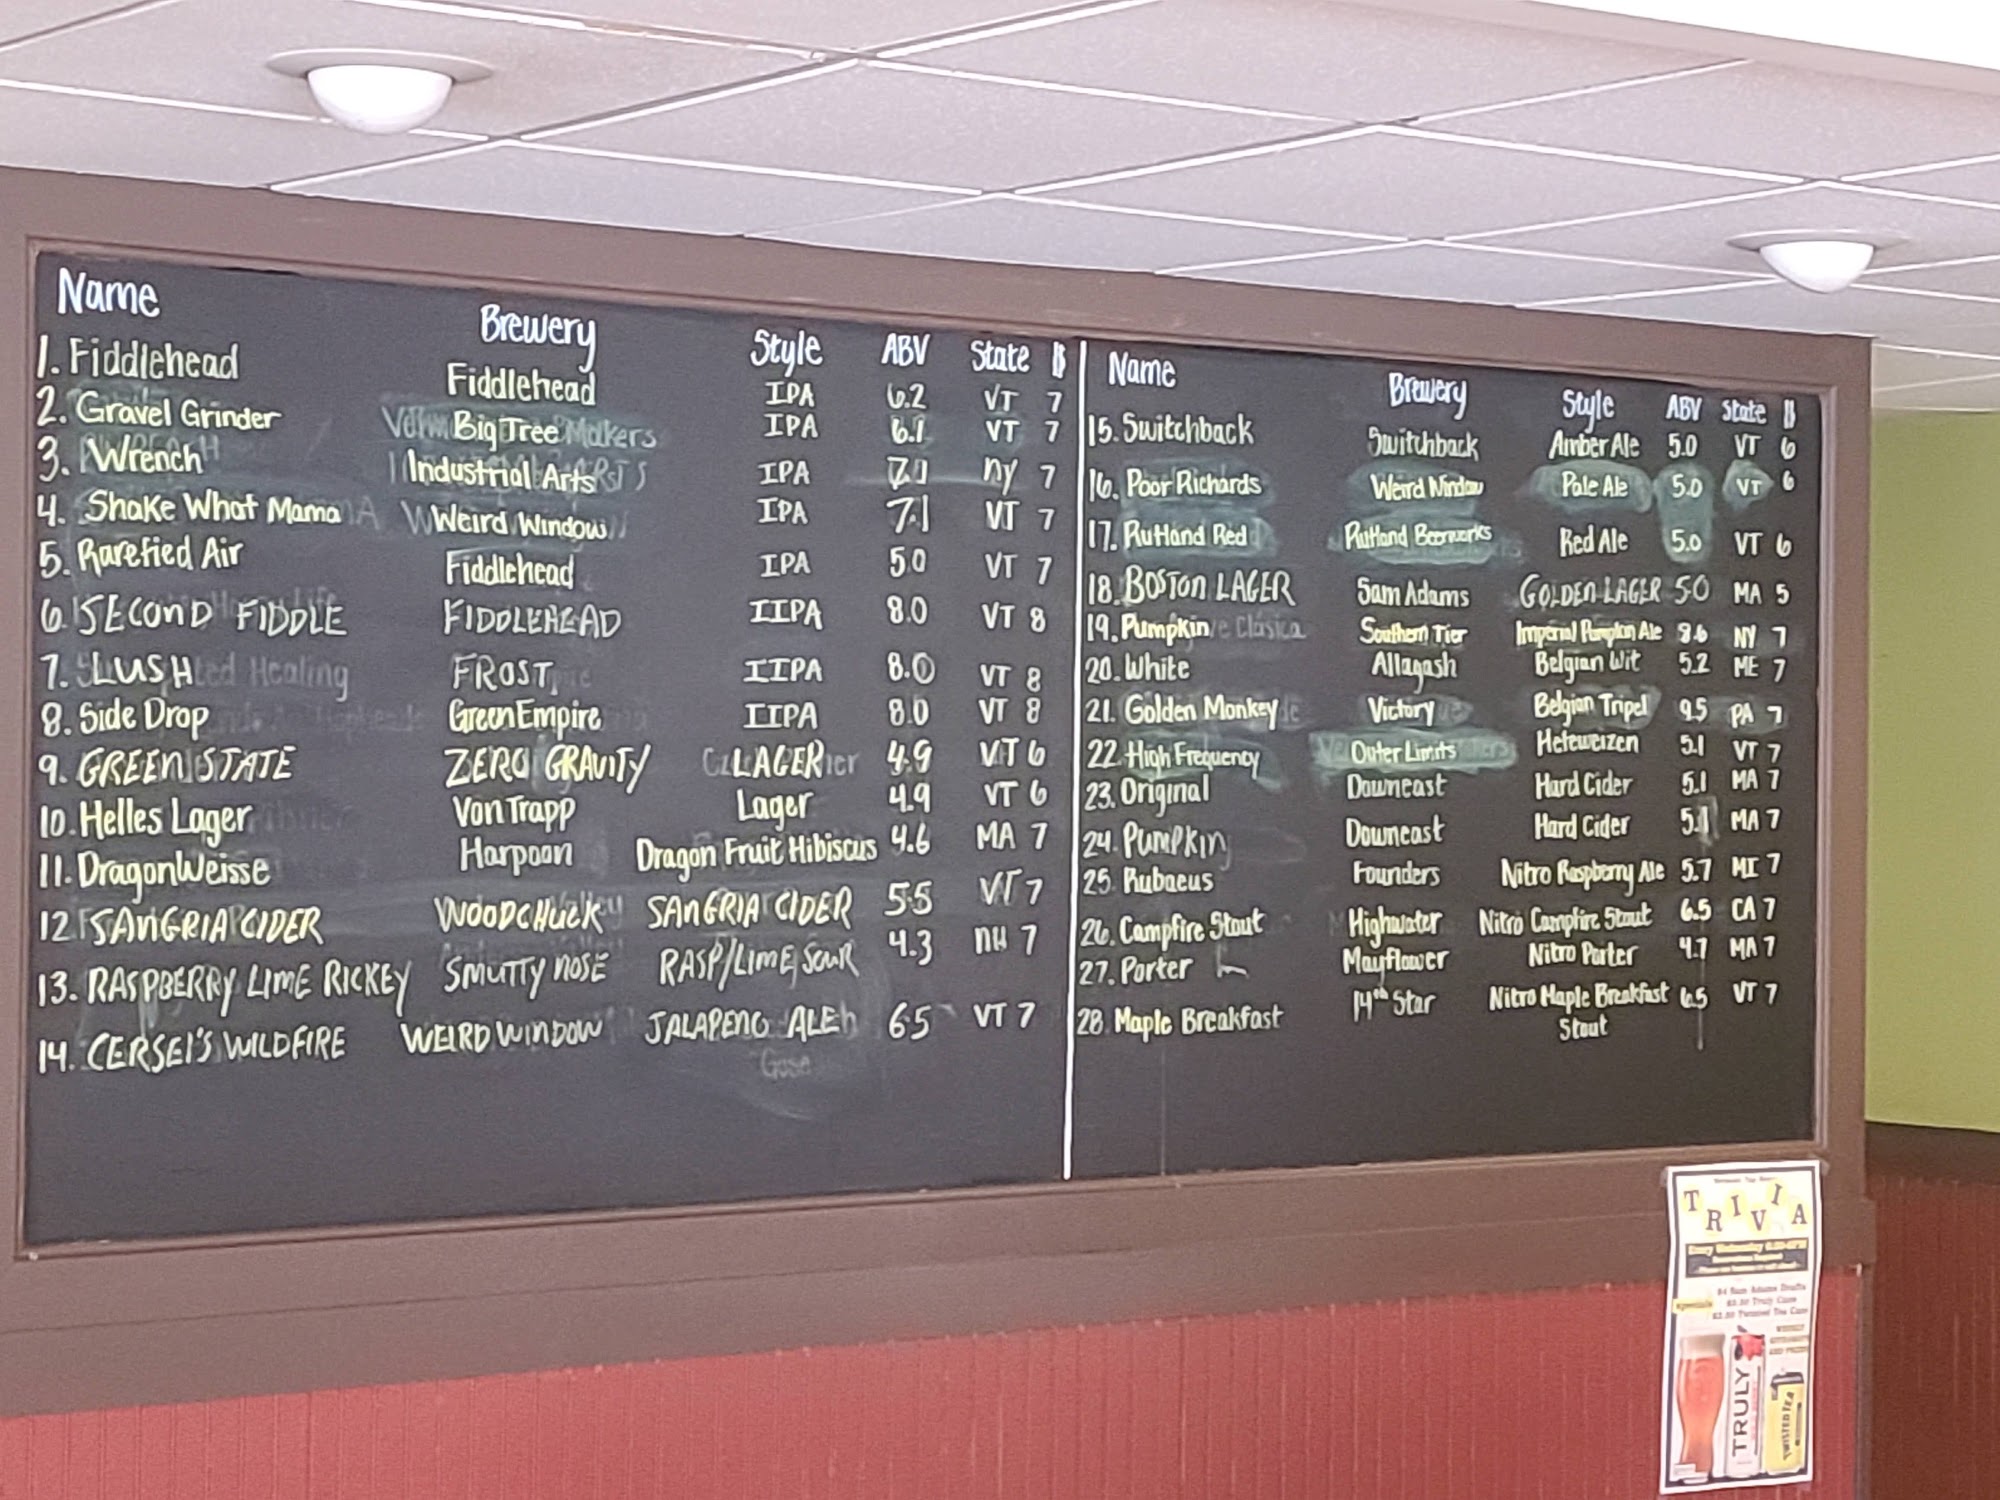 Name Brewery Style ABV State $
1. Fiddlehead Fiddlehead IPA 6.2 VT 7
2. Gravel Grinder Big Tree IPA 6.7 VT 7
3. Wrench Industrial Arts IPA 7.1 NY 7
4. Shake What Mama Weird Window IPA 7.1 VT 7
5. Rarefied Air Fiddlehead IPA 5.0 VT 7
6. SECOND FIDDLE FIDDLEHEAD IIPA 8.0 VT 8
7. LUSH FROST IIPA 8.0 VT 8
8. Side Drop Green Empire IIPA 8.0 VT 8
9. GREEN STATE ZERO GRAVITY LAGER 4.9 VT 6
10. Helles Lager Von Trapp Lager 4.9 VT 6
11. DragonWeisse Harpoon Dragon Fruit Hibiscus 4.6 MA 7
12 SANGRIA CIDER WOODCHUCK SANGRIA CIDER 5.5 VT 7
13. RASPBERRY LIME RICKEY SMUTTY NOSE RASP/LIME SOUR 4.3 NH 7
14. CERSEI'S WILDFIRE WEIRD WINDOW JALAPENO ALE 6.5 VT 7
Name Brewery Style ABV State $
15. Switchback Switchback Amber Ale 5.0 VT 6
16. Poor Richards Weird Window Pale Ale 5.0 VT 6
17. Rutland Red Rutland Beerworks Red Ale 5.0 VT 6
18. BOSTON LAGER Sam Adams GOLDEN LAGER 5.0 MA 5
19. Pumpkin Southern Tier Imperial Pumpkin Ale 8.6 NY 7
20. White Allagash Belgian Wit 5.2 ME 7
21. Golden Monkey Victory Belgian Tripel 9.5 PA 7
22. High Frequency Outer Limits Hefeweizen 5.1 VT 7
23. Original Downeast Hard Cider 5.1 MA 7
24. PUMPKIN Downeast Hard Cider 5.1 MA 7
25. Rubaeus Founders Nitro Raspberry Ale 5.7 MI 7
26. Campfire Stout Highwater Nitro Campfire Stout 6.5 CA 7
27. Porter Mayflower Nitro Porter 4.7 MA 7
28. Maple Breakfast 14th Star Nitro Maple Breakfast 6.5 VT 7
Stout
TRIVIA
specials
$4 Sam Adams Drafts
TRULY
TWISTED TEA